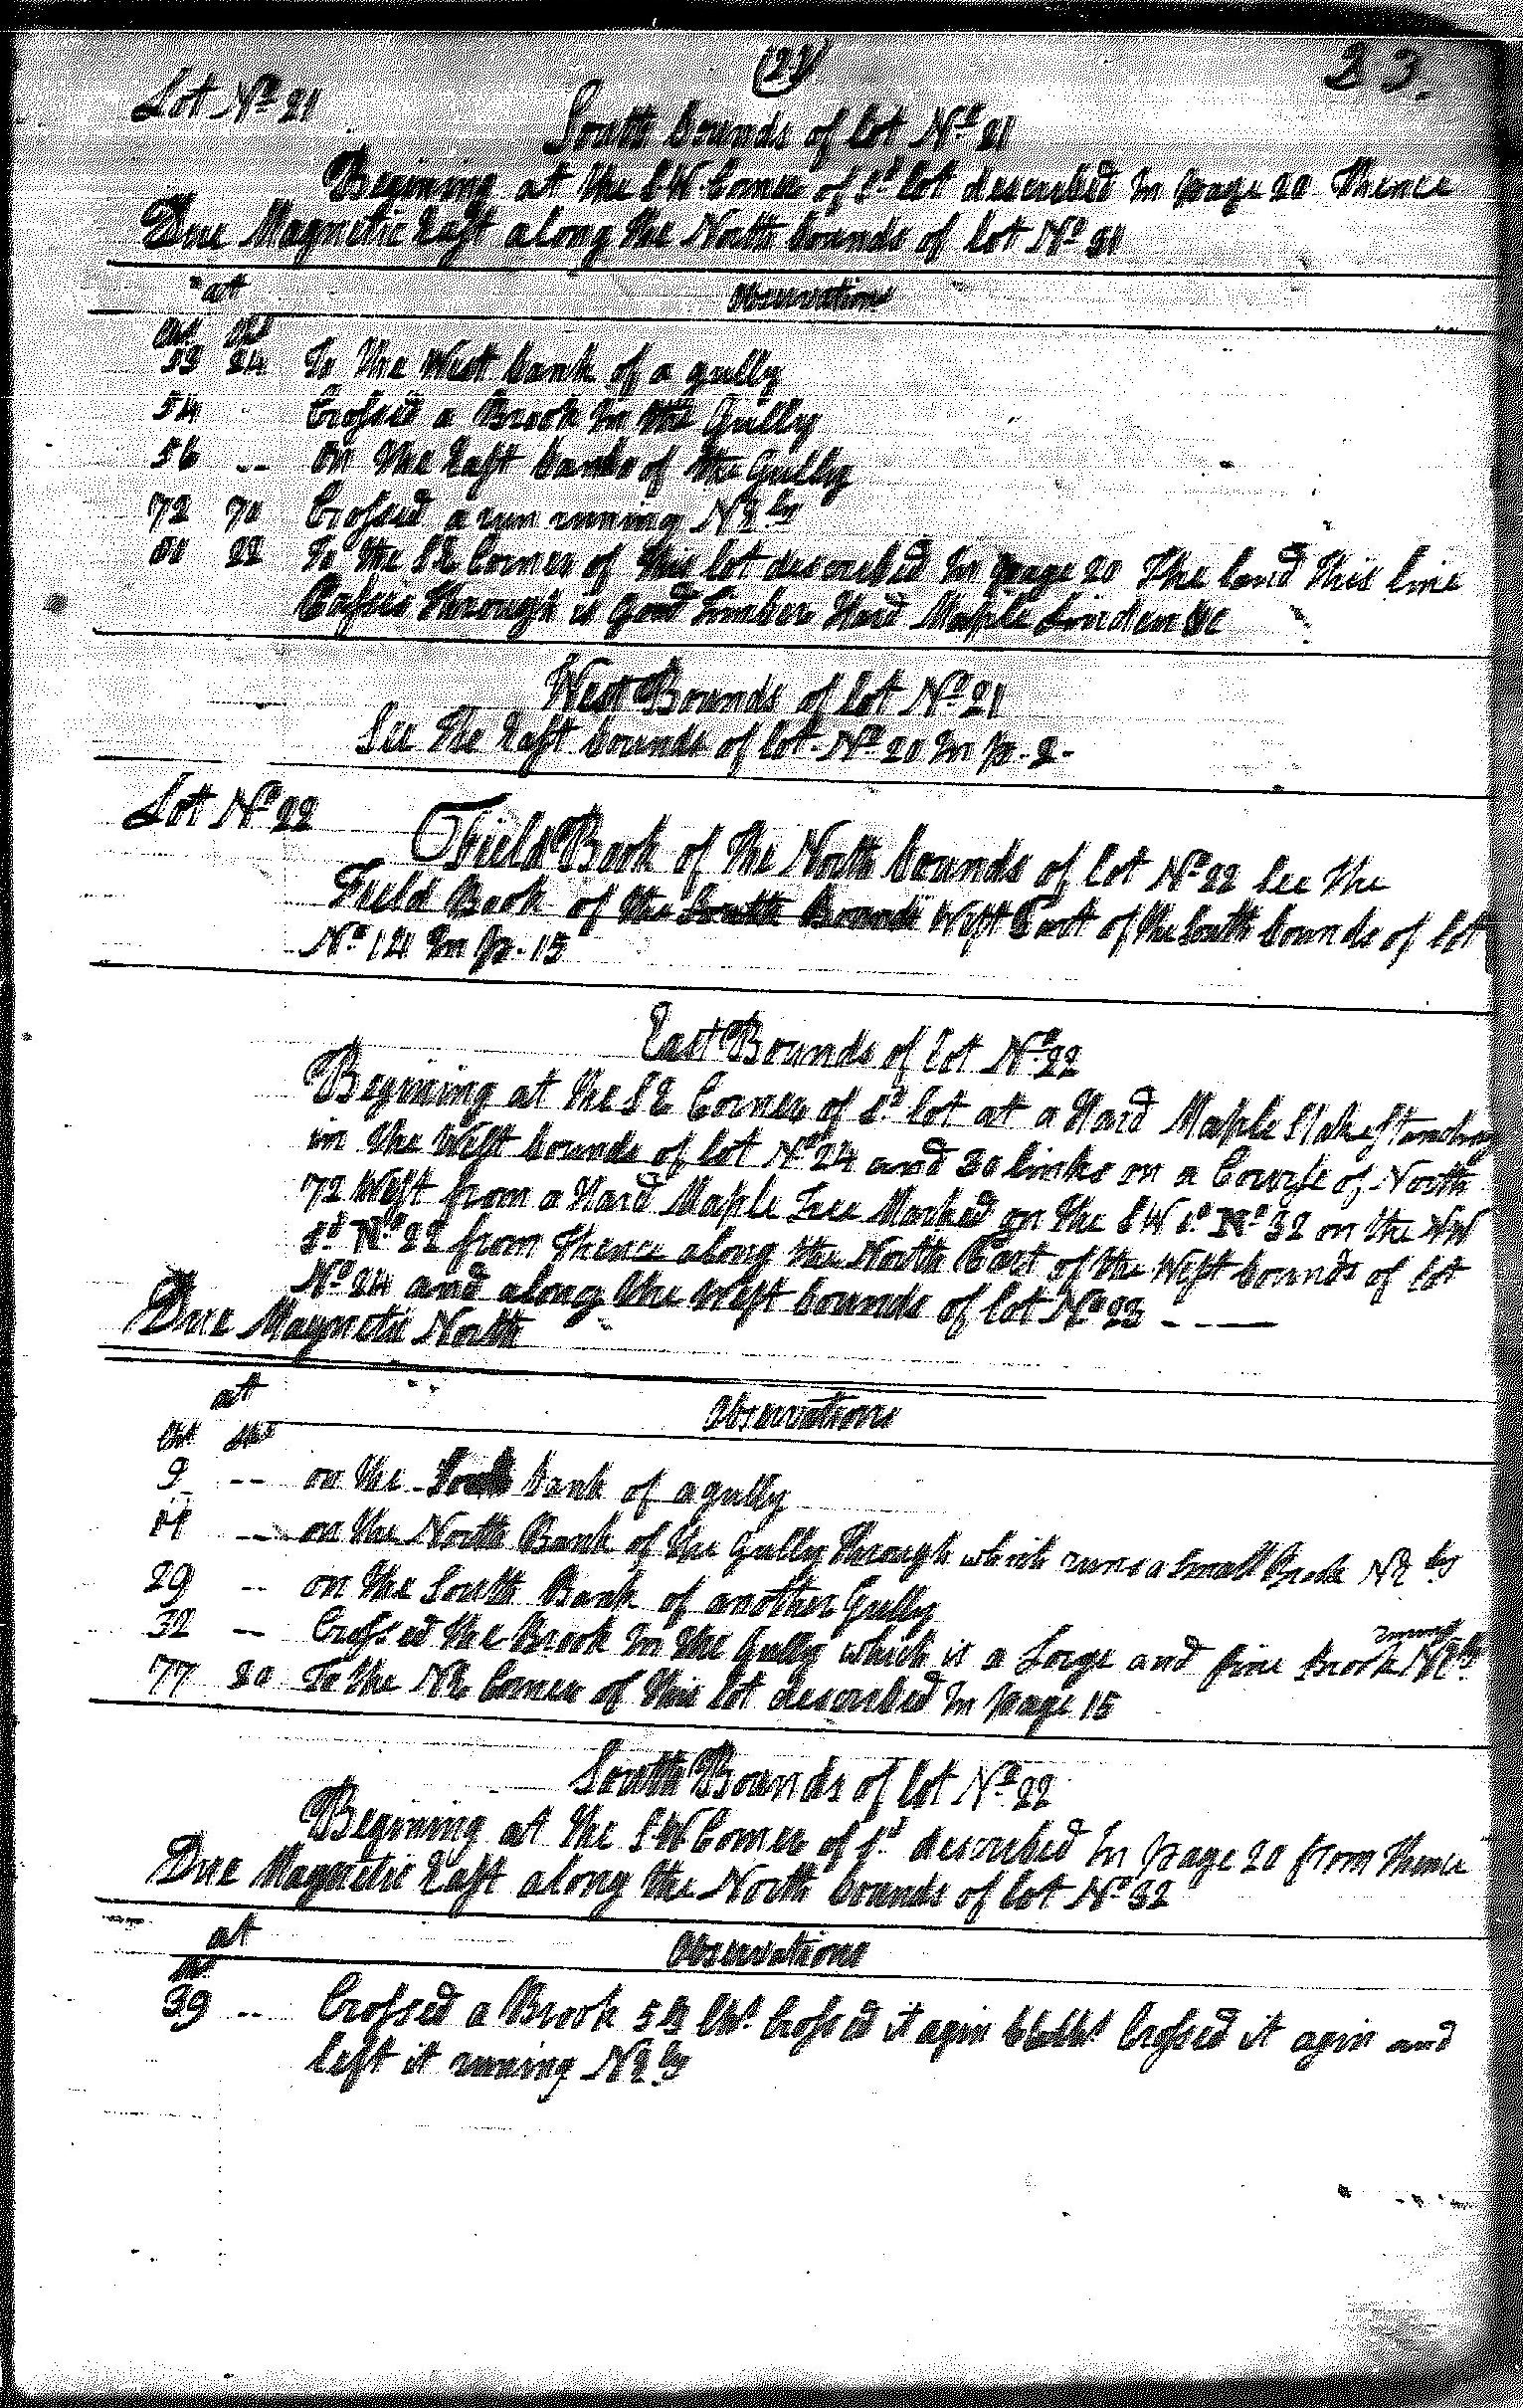 (21)
23.
Lot No 21
South bounds of lot No 21
Begining at the SW Corner of sd lot described in page 20 Thence
Due Magnetic East along the North bounds of lot No 31
at
Observation
Ch Lks
53 24 To the West bank of a gully
54 Crossed a Brook in the Gully
56 -- on the East banks of the Gully
72 70 Crossed a run runing NEly
22 To the SE Corner of this lot described in page 20 The land this line
Passes through is good timber Hard Maple Linden &c
West Bounds of lot No 21
See the East bounds of lot No 20 in p. 2-
Lot No 22
Field Book of the North bounds of lot No 22 See the
Field Book of the South Bounds West Part of the South bounds of lot
No 121 in p. 15
East Bounds of lot No 22
Begining at the SE Corner of sd lot at a Hard Maple Stake Standing
in the West bounds of lot No 24 and 30 links on a Course of North
72 West from a Hard Maple Tree Marked on the SW sd No 32 on the NW
sd No 22 from Thence along the North Part of the West bounds of lot
No 24 and along the West bounds of lot No 23 - - -
Due Magnetic North
at
Observations
Ch Lks
9 -- on the South bank of a gully
11 -- on the North Bank of the Gully Through which runs a Small Brook NEly
29 -- on the South Bank of another Gully
32 -- Crossed the Brook in the Gully which is a Large and fine brook runing NEly
77 80 To the NE Corner of this lot described in page 15
South Bounds of lot No 22
Begining at the SW Corner of sd described in page 20 from Thence
Due Magnetic East along the North bounds of lot No 32
at
Observations
39 -- Crossed a Brook 54 Chs Crossed it agin Crossed it agin and
left it runing NEly